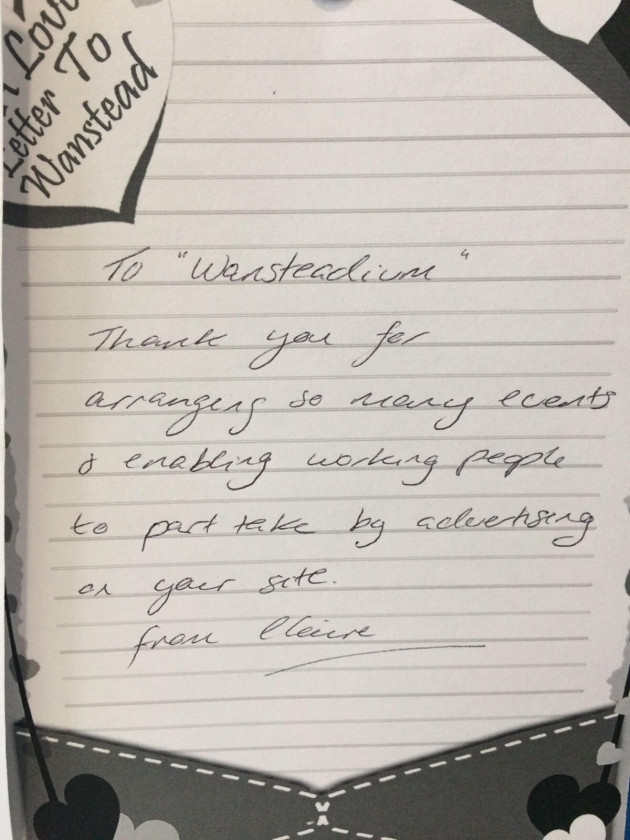 A Love
Letter To
Wanstead
To "Wansteadium"
Thank you for
arranging so many events
& enabling working people
to part take by advertising
on your site.
from Claire